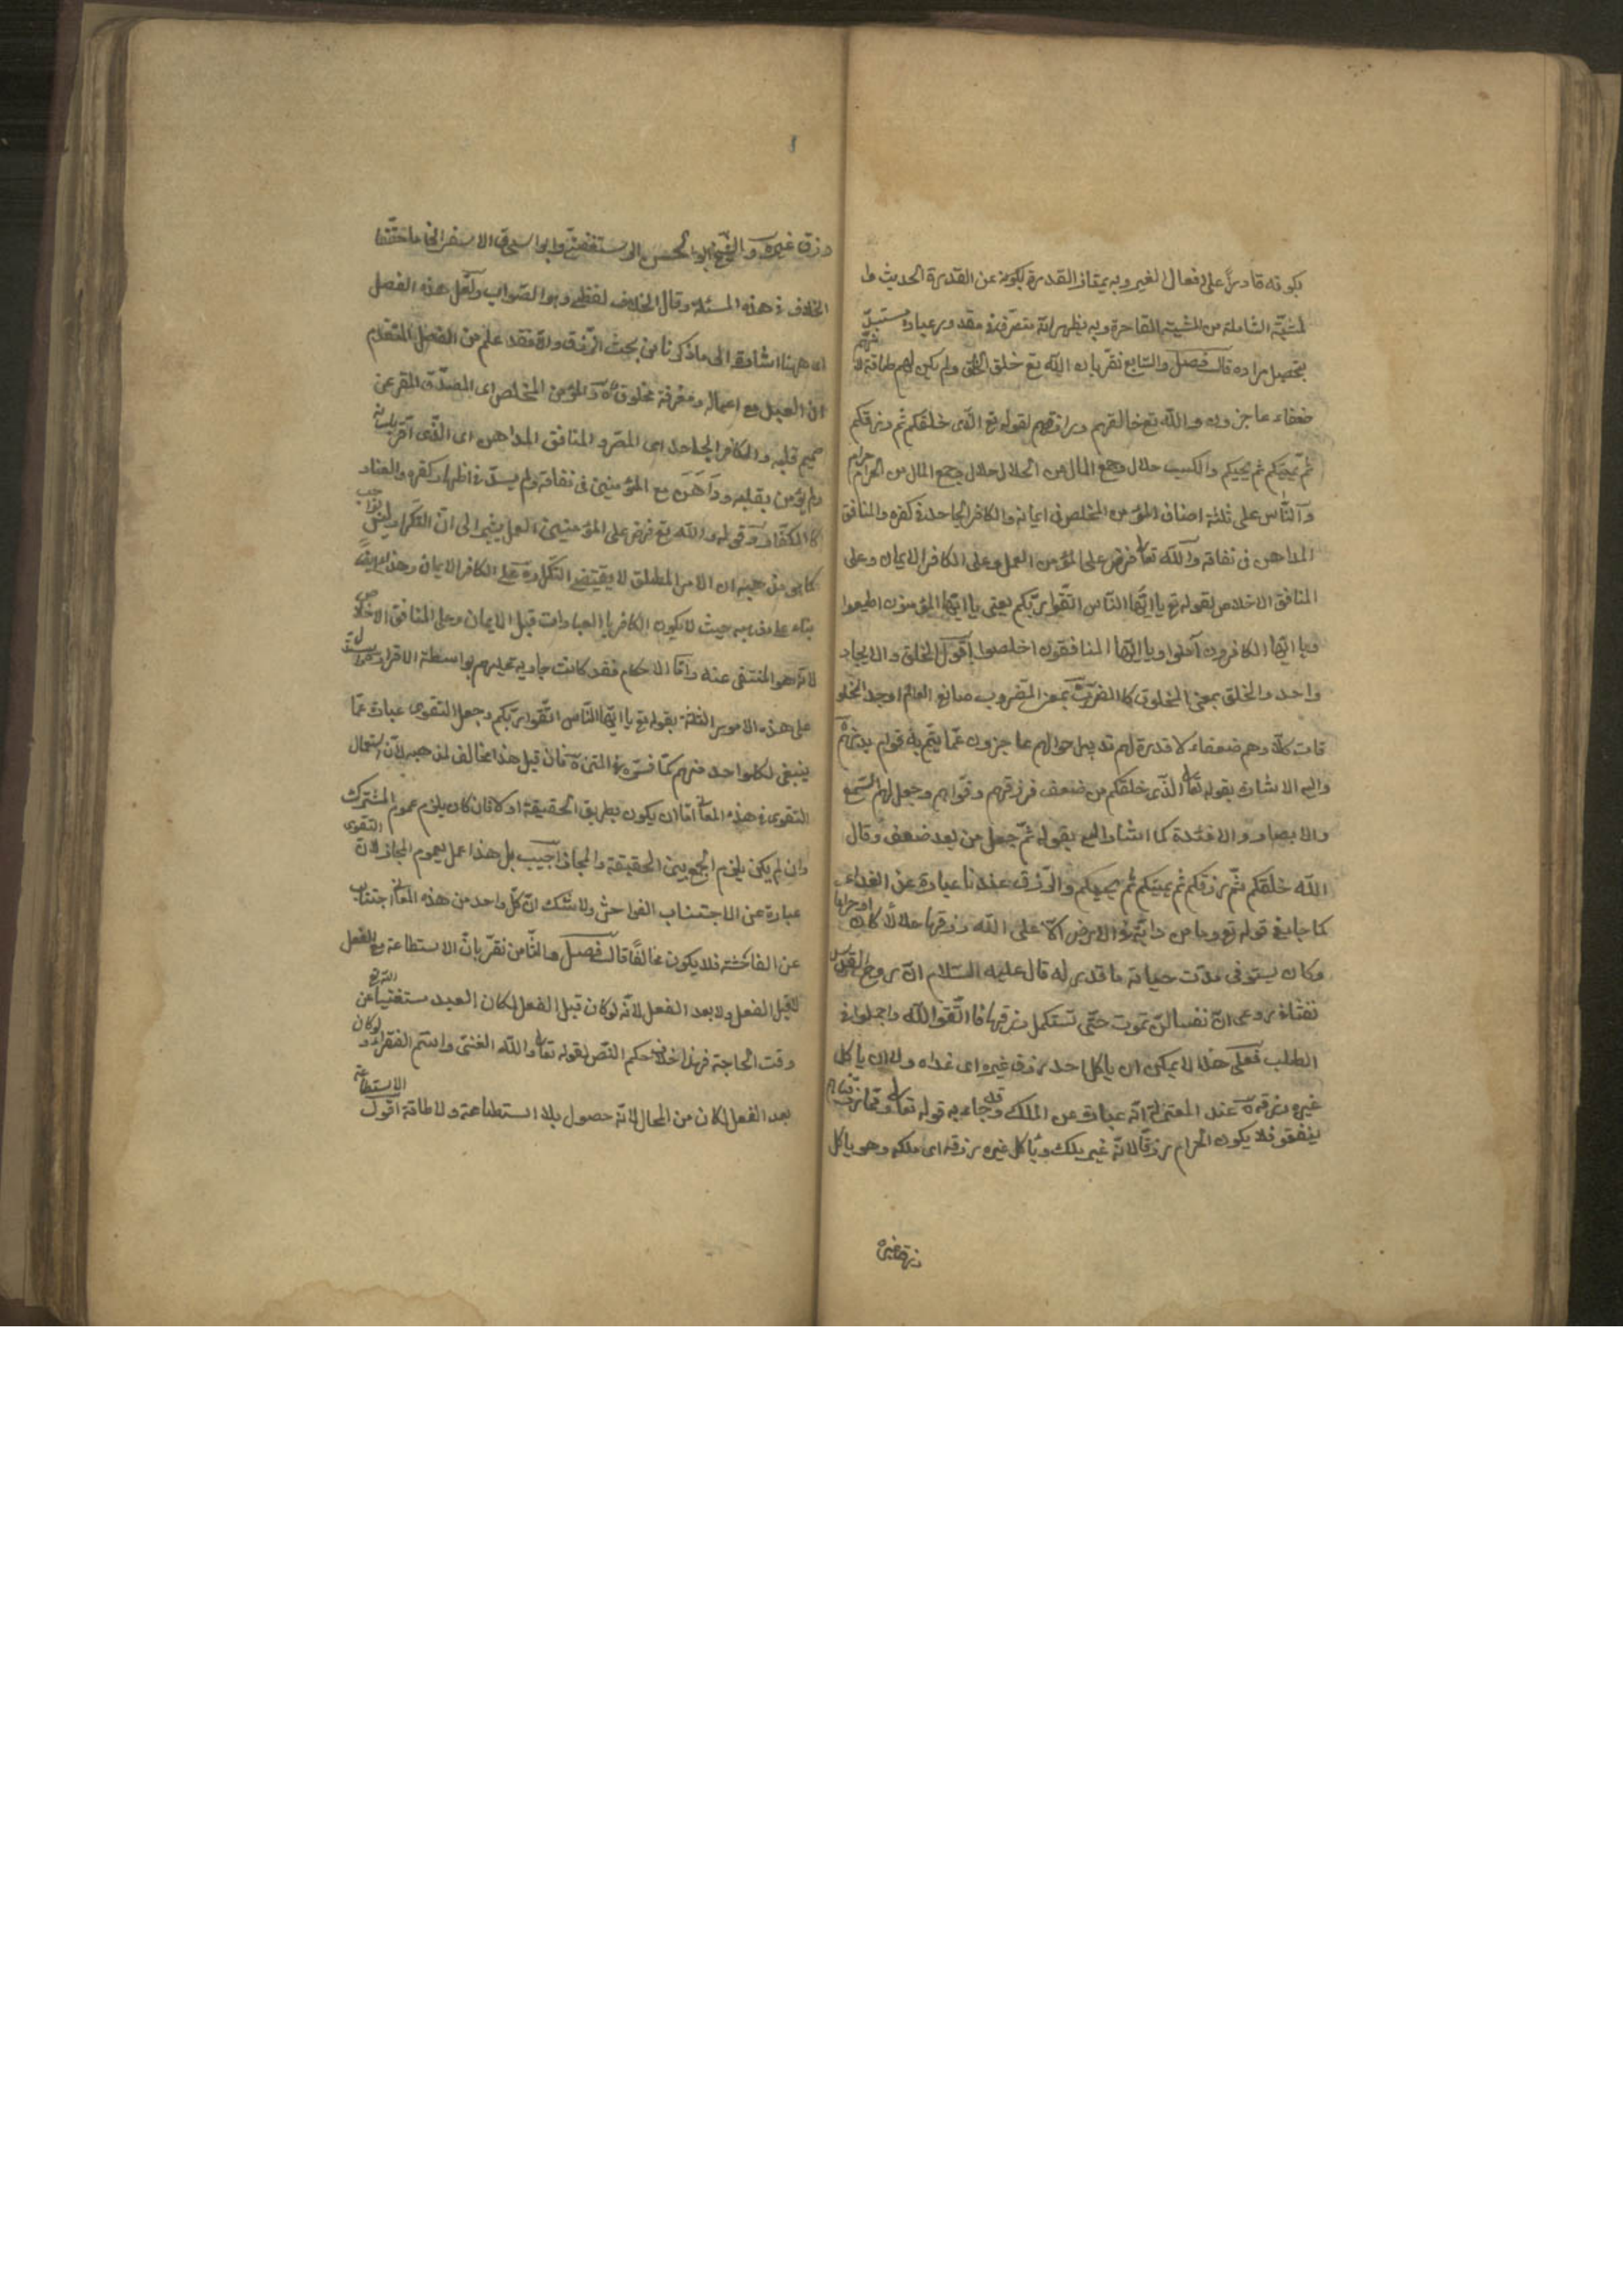 بكونه قادرًا على افعال الغير وبه يمتاز القدرة بكونه عن القدرة الحديث وا
لمشيّة الشاملة من المشية القاصرة وبه يظهر انه متصرّف في مقدور عباده مستبدّ
بتحصيل مراده قال فصل والسابع نقرّ بان الله تع خلق الخلق ولم يكن لهم طاقة لا نّهم
ضعفاء عاجزون والله تع خالقهم ورازقهم لقوله تع الذى خلقكم ثم رزقكم
ثم يميتكم ثم يحييكم والكسب حلال وجمع المال من الحلال حلال وجمع المال من الحرام حرام
والنّاس على ثلثة اصناف المؤمن المخلص فى ايمانه والكافر الجاحد فى كفره والمنافق
المداهن فى نفاقه والله تعالى فرض على المؤمن العمل وعلى الكافر الايمان وعلى
المنافق الاخلاص لقوله تع يا ايّها النّاس اتّقوا ربّكم يعنى يا ايّها المؤمنون اطيعوا
ويا ايّها الكافرون آمنوا ويا ايّها المنافقون اخلصوا اقول الخلق والايجاد
واحد والخلق بمعنى المخلوق كالضرب بمعنى المضروب صانع العالم اوجد المخلو
قات كلّا وهم ضعفاء لا قدرة لهم عاجزون عمّا يتم به قوام
واليه الاشارة بقوله تعالى الذى خلقكم من ضعف فرزقهم وقواهم وجعل لهم السّمع
والابصار والافئدة كما اشار اليه بقوله ثمّ جعل من بعد ضعف وقال
الله خلقكم ثمّ رزقكم ثم يميتكم ثم يحييكم والرّزق عندنا عبارة عن الغذاء
كما جاء فى قوله تع وما من دابّة فى الارض الّا على الله رزقها حلالًا كان او حراما
وكان يستوفى مدّت حياته ما قدر له قال عليه السّلام انّ روح القدس
نفث فى روعى انّ نفسا لن تموت حتّى تستكمل رزقها فاتّقوا الله واجملوا فى
الطلب فعلى هذا لا يمكن ان ياكل احد رزق غيره اى غذاه ولا ان ياكل
غيره رزقه عند المعتزلة انّه عبارة عن الملك وقد جاء به قوله تعالى وممّا رزقناهم
ينفقون فلا يكون الحرام رزقًا لانّه غير ملك وياكل غيره رزقه اى ملكه وهو ياكل
رزق غيره
رزق غيره والشّيخ ابو الحسن الرستغفنىّ وابو اسحق الاسفراينى ما حقّقا
الخلاف فى هذه المسئلة وقال الخلاف لفظى وهو الصّواب ولعلّ هذه الفصل
اى ههنا اشارة الى ما ذكرنا من بحث الرّزق والّا فقد علم من الفصل المتقدّم
ان العبد مع اعماله ومعرفة مخلوق والمؤمن المخلص اى المصدّق المقر عن
صميم قلبه والكافر الجاحد اى المصرّ والمنافق المداهن اى الّذى اقرّ بلسانه
ولم يؤمن بقلبه وداهن مع المؤمنين فى نفاقه ولم اظهار كفره والعناد
كالكفّار وقوله والله تع فرض على المؤمنين العمل يشير الى انّ التكرار ليس بواجب
كما هو مذهبه ان الامر المطلق لا يقتضى التكرار وعلى الكافر الايمان وهذا ايضًا
بناء على مذهبه حيث لا يكون الكافر بالعبادات قبل الايمان وعلى المنافق الاخلاص
لانّه هو المنتفى عنه وامّا الاحكام فقد كانت جارية عليهم بواسطة الاقرار
على هذه الامور الثلثة بقوله تع يا ايّها النّاس اتّقوا ربّكم وجعل التقوى عبارة عمّا
ينبغى لكل واحد منهم كما فسّره فى المتن فان قيل هذا مخالف لمذهبه لانّ استعمال
التقوى فى هذه المعانى امّا ان يكون بطريق الحقيقة او لا فان كان يلزم عموم المشترك
وان لم يكن يلزم الجمع بين الحقيقة والمجاز اجيب بل هذا عمل بعموم المجاز لانّ التقوى
عبارة عن الاجتناب الفواحش ولا شك انّ كلّ واحد من هذه المعانى اجتناب
عن الفاحشة فلا يكون مخالفًا قال فصل والثّامن نقرّ بانّ الاستطاعة مع الفعل
لا قبل الفعل ولا بعد الفعل لانّه لو كان قبل الفعل لكان العبد مستغنيا عن الله تع
وقت الحاجة فهذا خلاف حكم النّص لقوله تعالى والله الغنىّ وانتم الفقراء ولو كان
بعد الفعل لكان من المحال لانّه حصول بلا استطاعة ولا طاقة اقول الاستطاعة